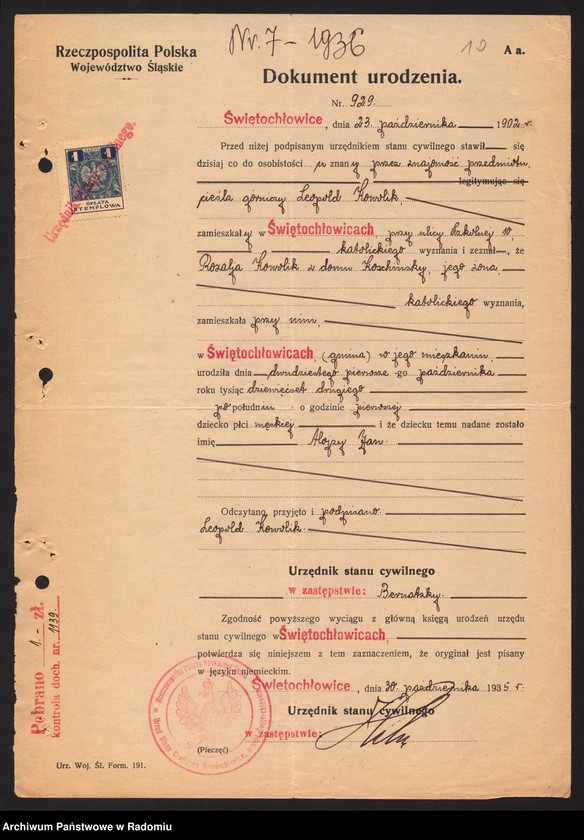 Nr. 7 – 1936
10
A a.
Rzeczpospolita Polska
Województwo Śląskie
Dokument urodzenia.
Nr. 929.
Świętochłowice, dnia 23. października 1902 r.
Przed niżej podpisanym urzędnikiem stanu cywilnego stawił się
dzisiaj co do osobistości u znany przez znajomość przedmiotu,
legitymując się
cieśla górniczy Leopold Kowolik,
zamieszkały w Świętochłowicach, przy ulicy Szkolnej
katolickiego wyznania i zeznał, że
Rozalja Kowolik z domu Koschinsky, jego żona,
katolickiego wyznania,
zamieszkała przy nim,
w Świętochłowicach (gmina) w jego mieszkaniu,
urodziła dnia dwudziestego pierwszego października
roku tysiąc dziewięćset drugiego
po południu o godzinie pierwszej
dziecko płci męskiej i że dziecku temu nadane zostało
imię Alojzy Jan.
Odczytano, przyjęto i podpisano.
Leopold Kowolik.
Urzędnik stanu cywilnego
w zastępstwie: Bernatzky.
Zgodność powyższego wyciągu z główną księgą urodzeń urzędu
stanu cywilnego w Świętochłowicach,
potwierdza się niniejszem z tem zaznaczeniem, że oryginał jest pisany
w języku niemieckim.
Świętochłowice, dnia 30. października 1935 r.
Urzędnik stanu cywilnego
w zastępstwie:
(Pieczęć)
Urz. Woj. Śl. Form. 191.
1 1
OPŁATA
STEMPLOWA
Pobrano 1.- zł.
kontrola doch. nr. 1139.
Archiwum Państwowe w Radomiu